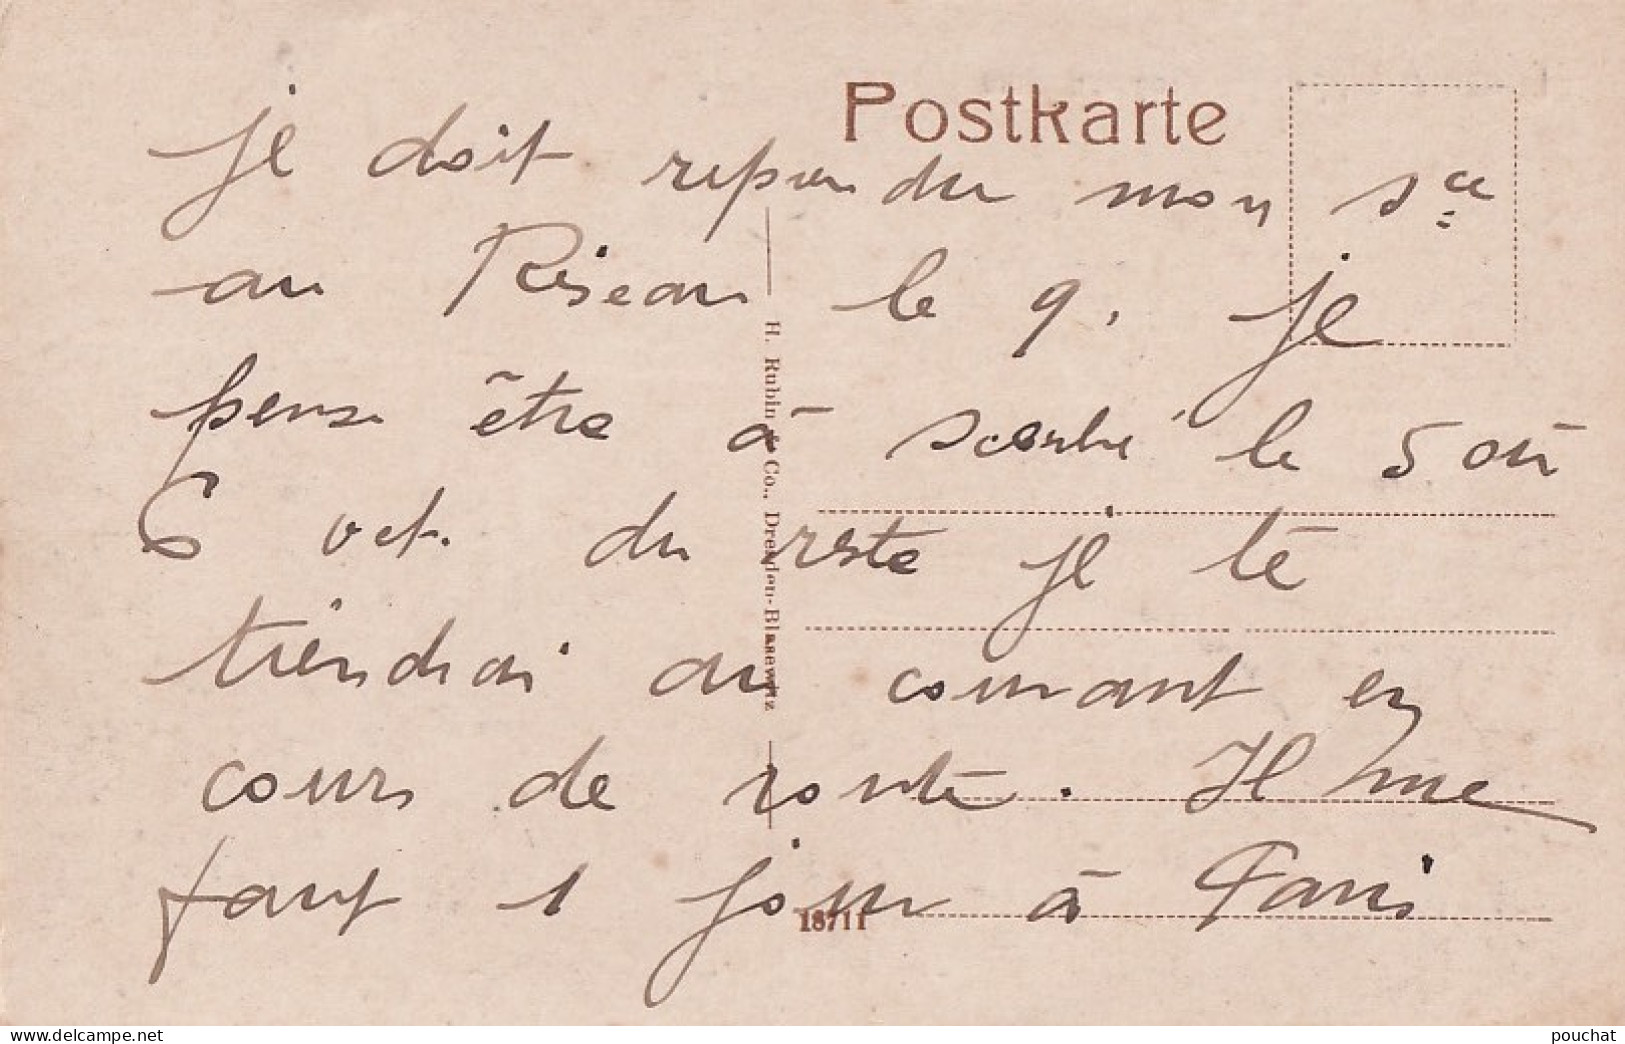 Postkarte
je doit reprendre mon sce
au Réseau le 9, je
pense être à le 5 où
6 oct. du reste je te
tiendrai au courant en
cours de route. Il me
faut 1 jour à Paris
H. Rubin & Co., Dresden-Blasewitz
18711
www.delcampe.net
pouchat